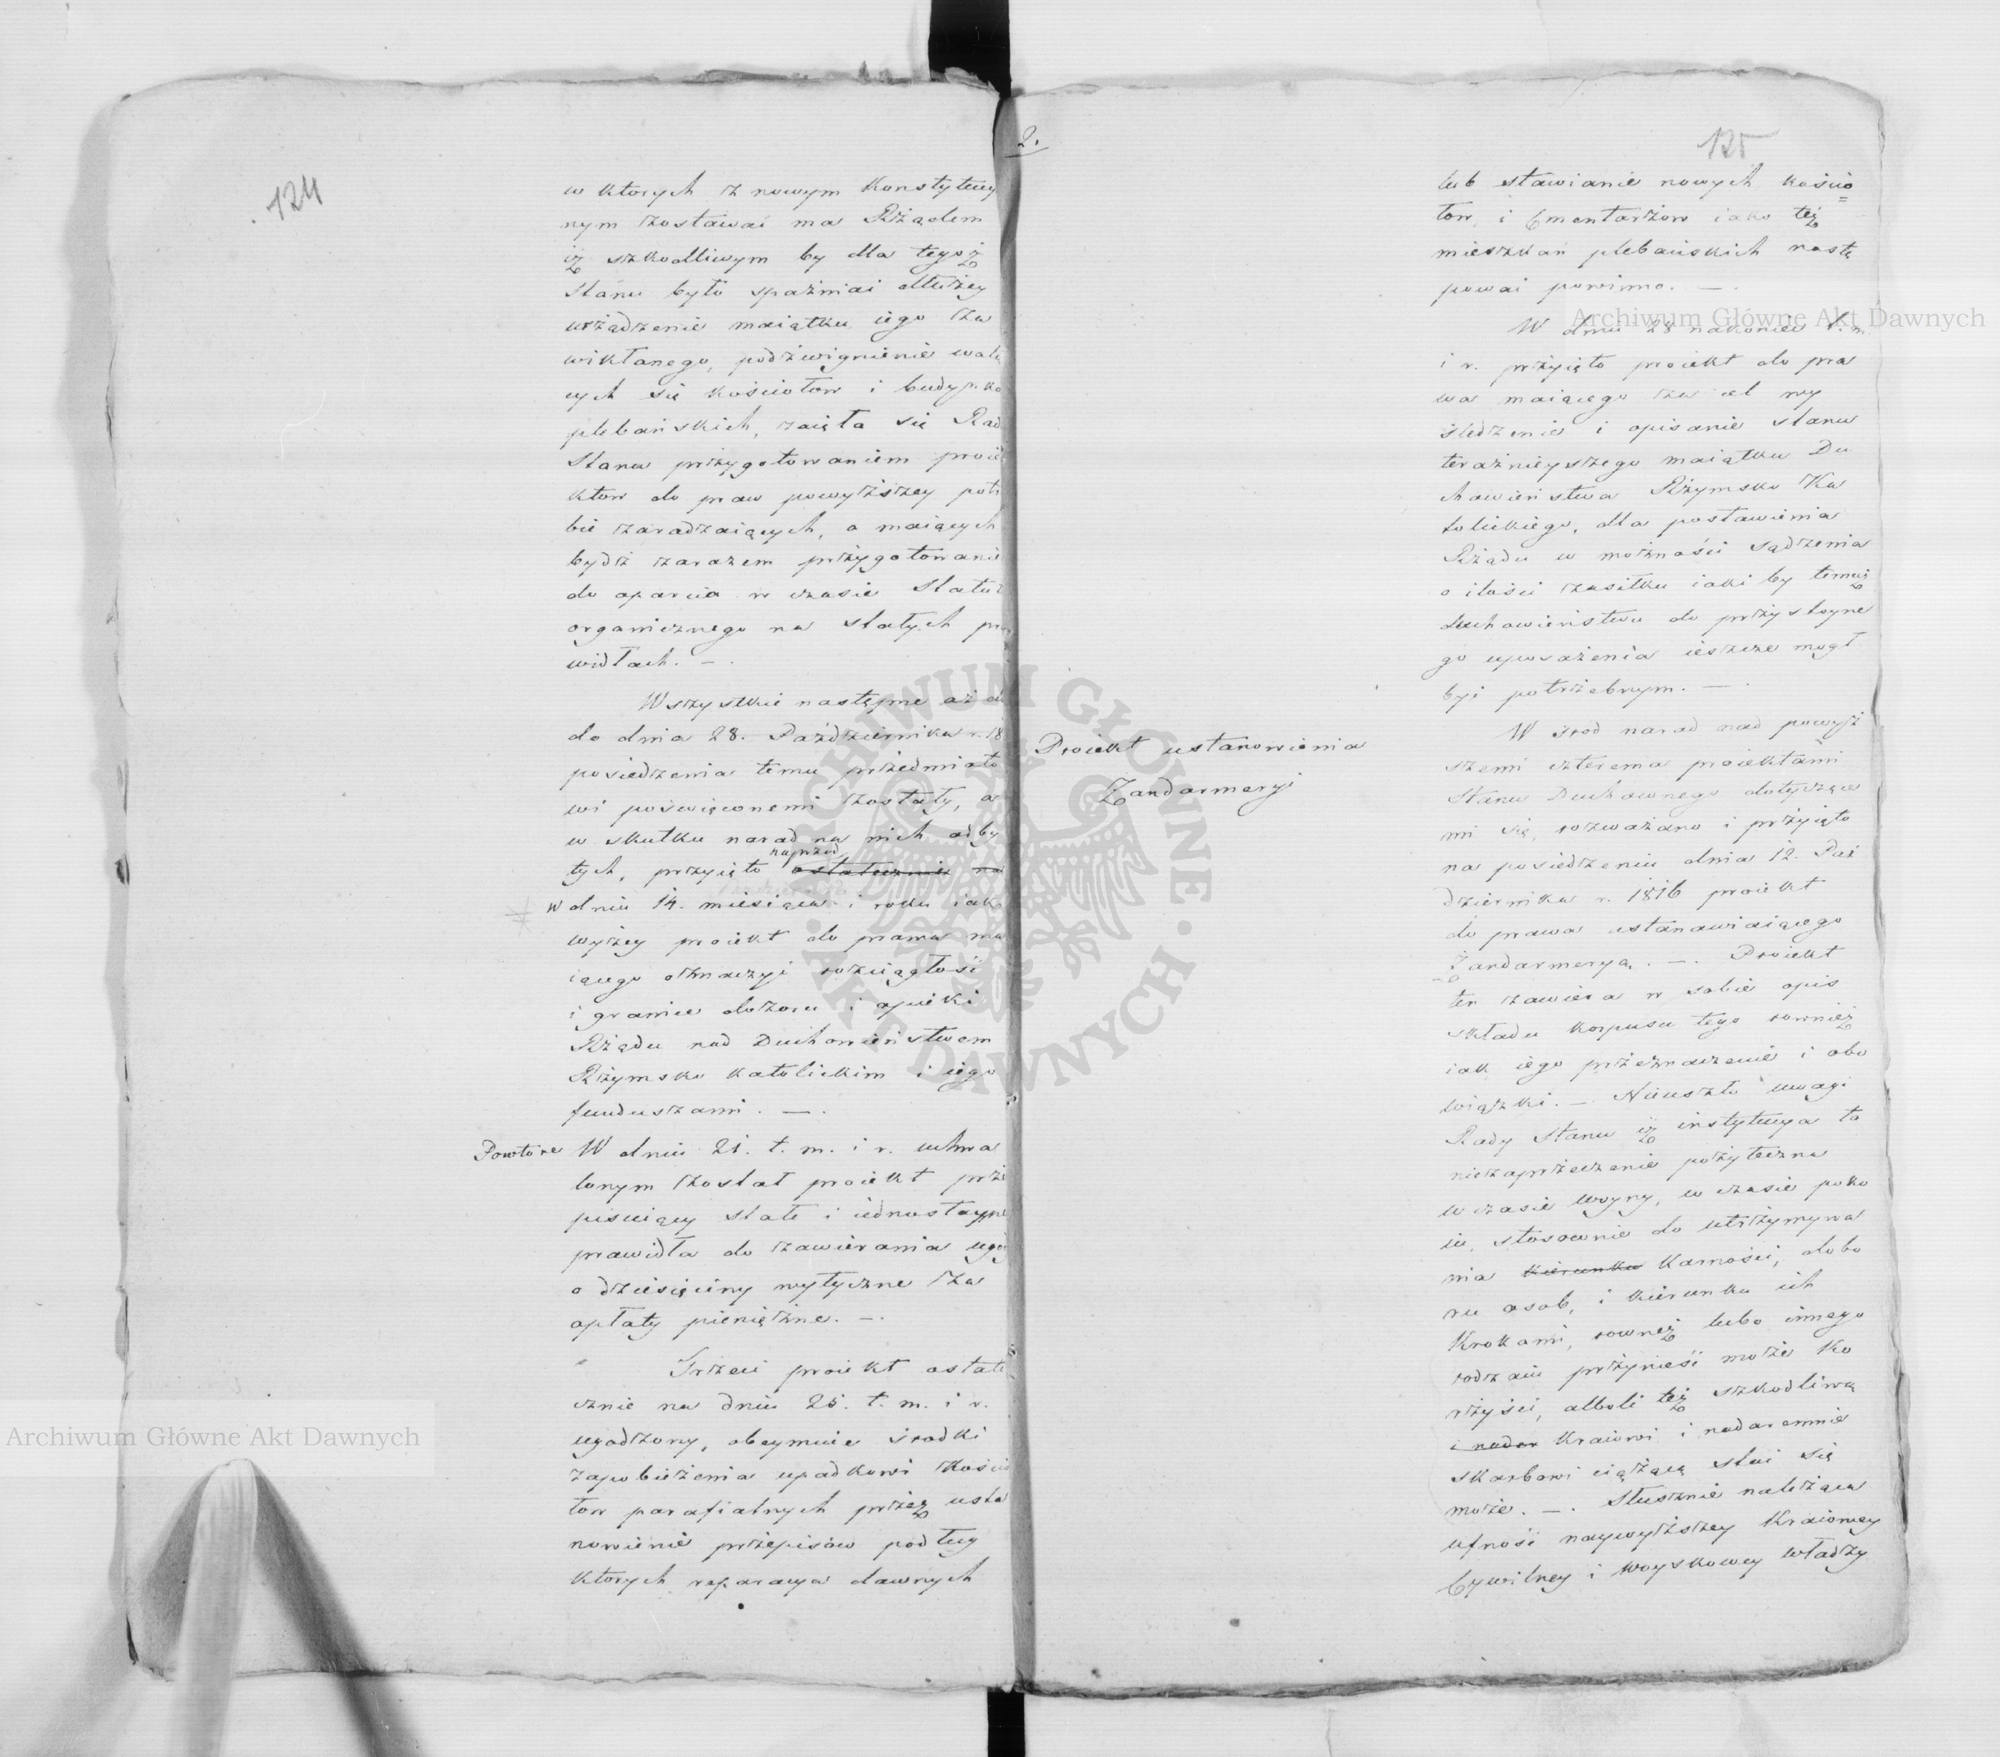 124
w ktorych z nowym Konstytucy
nym zostawać ma Rządem
iż szkodliwym by dla tegoż
Stanu było spaźniać dłużey
urządzenie maiątku iego za
wikłanego, podźwignienie walą
cych się kościołow i budynko
plebańskich, zaięła się Rad
Stanu przygotowaniem proie
ktow do praw powyższey potr
bie zaradzaiących, a maiących
bydź zarazem przygotowanie
do oparcia w czasie Statut
organicznego na stałych pra
widłach. —.
Wszystkie następne aż do
do dnia 28. Października r. 18
posiedzenia temu przedmioto
wi poświęconemi zostały, a
w skutku narad na nich odby
tych, przyięto naprzod ostatecznie na
w dniu 14. miesiąca i roku iak
wyżey proiekt do prawa ma
iącego oznaczyć rozciągłość
i granice dozoru i opieki
Rządu nad Duchowieństwem
Rzymsko Katolickim i iego
funduszami. —.
Powtore W dniu 21. t. m. i r. uchwa
lonym został proiekt prze
pisuiący stałe i iednostayne
prawidła do zawierania ugod
o dziesięciny wytyczne za
opłaty pieniężne. —.
Trzeci proiekt ostate
cznie na dniu 25. t. m. i r.
ugodzony, obeymuie środki
zapobieżenia upadkowi Kościo
łow parafialnych przez usta
nowienie przepisów podług
ktorych reparacya dawnych
2.
125
lub stawianie nowych kościo
łow, i Cmentarzow iako też
mieszkań plebańskich nastę
pować powinno. —.
W dniu 28 nakoniec t. m.
i r. przyięto proiekt do pra
wa maiącego za cel wy
śledzenie i opisanie stanu
teraźnieyszego maiątku Du
chowieństwa Rzymsko Ka
tolickiego, dla postawienia
Rządu w możności sądzenia
o ilości zasiłku iaki by temuż
duchowieństwu do przystoyne
go uposażenia ieszcze mogł
być potrzebnym. —.
Proiekt ustanowienia
Żandarmeryi
W środ narad nad powyż
szemi czterema proiektami
Stanu Duchownego dotyczące
mi się, rozważano i przyięto
na posiedzeniu dnia 12. Paź
dziernika r. 1816 proiekt
do prawa ustanawiaiącego
Żandarmeryą. —. Proiekt
ten zawiera w sobie opis
składu korpusu tego rownież
iak iego przeznaczenie i obo
wiązki. —. Nieuszło uwagi
Rady Stanu iż instytucya ta
niezaprzeczenie pożyteczna
w czasie woyny, w czasie poko
iu, stosownie do utrzymywa
nia kierunku Karności, dobo
ru osob, i kierunku ich
Krokami, rownież lubo innego
rodzaiu przynieść może Ko
rzyści, alboli też szkodliwą
i nader Kraiowi i nadaremnie
skarbowi ciążącą stać się
może. —. Słusznie należąca
ufność naywyższey Kraiowey
Cywilney i woyskowey władzy
Archiwum Główne Akt Dawnych
Archiwum Główne Akt Dawnych
ARCHIWUM GŁÓWNE · AKT DAWNYCH ·